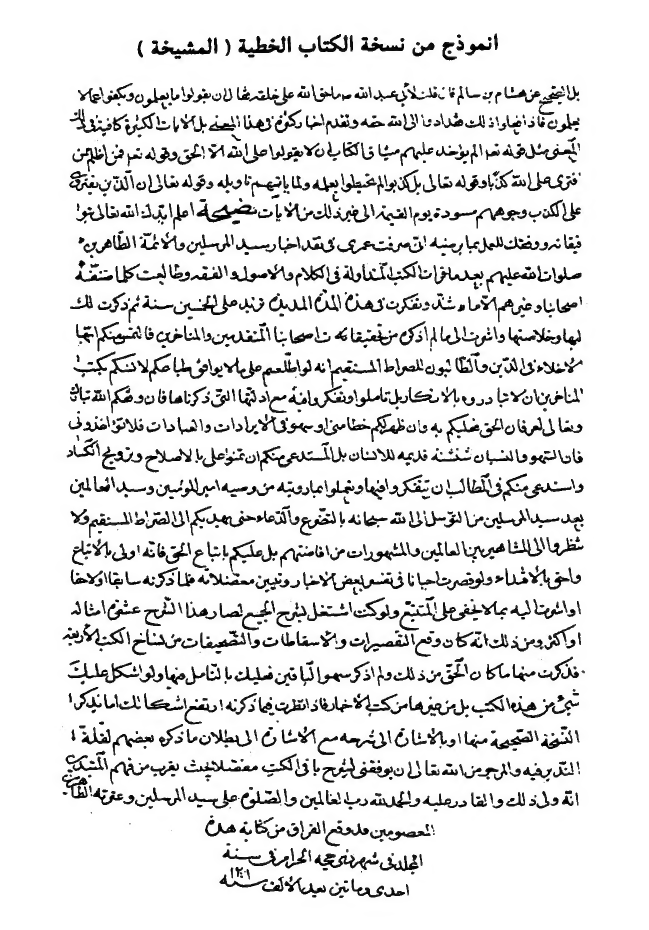 انموذج من نسخة الكتاب الخطية ( المشيخة )
عن هشام بن سالم قال قلت لأبي عبد الله ما حق الله على خلقه فقال ان يقولوا ما يعلمون ويكفوا عما لا
يعلمون فاذا فعلوا ذلك فقد ادوا الى الله حقه وتقدم اخبار كثيرة في هذا المعنى بل الايات الكثيرة كافية في ذلك
المعنى مثل قوله تعالى الم يؤخذ عليهم ميثاق الكتاب ان لا يقولوا على الله الا الحق وقوله تعالى فمن اظلم ممن
افترى على الله كذبا وقوله تعالى بل كذبوا بما لم يحيطوا بعلمه ولما ياتيهم تاويله وقوله تعالى ان الذين يفترون
على الكذب وجوههم مسودة يوم القيمة الى غير ذلك من الايات نصيحة اعلم ايدك الله تعالى
ووفقك للعمل بما يرضيه انى صرفت عمرى فى نقد اخبار سيد المرسلين والائمة الطاهرين
صلوات الله عليهم بعد ما قرات الكتب المتداولة فى الكلام والاصول والفقه وطالعت كلما صنفه
اصحابنا وغيرهم الا ما شذ وتفكرت فى هذه المدة المديدة تزيد على الخمسين سنة ثم ذكرت لك
لبها وخلاصتها واشرت الى ما لم اذكره من تحقيقات اصحابنا المتقدمين والمتاخرين فالتمس منكم ايها
الاخلاء فى الدين والطالبون للصراط المستقيم انه لو اطلعتم على ما لا يوافق طباعكم لانسكم بكتب
المتاخرين ان لا تبادروه بالانكار بل تاملوا وتفكروا فيه مع ادلتها التى ذكرناها فان وفقكم الله تبارك
وتعالى لعرفان الحق فعليكم به وان ظهر لكم خطائى او سهوى فى الايرادات والعبادات فلا تؤاخذونى
فان السهو والنسيان شنشنة قديمة للانسان بل المستدعى منكم ان تمنوا على بالاصلاح وترويج الكساد
واستدعى منكم فى الطالب ان يتفكروا فيها ويعملوا بما رويته من وصيه امير المؤمنين وسيد العالمين
بعد سيد المرسلين من التوسل الى الله سبحانه بالتضرع والدعاء حتى يهديكم الى الصراط المستقيم ولا
تنظروا الى المشاهير بين العالمين والمشهورات من افاضتهم بل عليكم باتباع الحق فانه اولى بالاتباع
واحق بالاقتداء ولو قصرت احيانا فى تفسير بعض الاخبار وتبيين معضلاته فلما ذكرته سابقا او لاحقا
او اشرت اليه بما لا يخفى على المتتبع ولو كنت اشتغل بشرح الجميع لصار هذا الشرح عشرة امثاله
او اكثر ومن ذلك انه كان وقع التقصيرات والاسقاطات والتصحيفات من نساخ الكتب الاربعة
فذكرت منها ما كان الحق من ذلك ولم اذكر سهو الباقين فعليك بالتامل فيها ولو اشكل عليك
شئ من هذه الكتب بل من غيرها من كتب الاخبار فاذا نظرت فيما ذكرته ارتفع اشكالك اما بذكر
النسخة الصحيحة منها او بالاشارة الى شرحه مع الاشارة الى بطلان ما ذكره بعضهم لقلة
التدبر فيه والمرجو من الله تعالى ان يوفقنى لشرح باقى الكتب مفصلا بحيث يقرب من فهم المبتدى
انه ولى ذلك والقادر عليه والحمد لله رب العالمين والصلوة على سيد المرسلين وعترته الطاهرين
المعصومين قد وقع الفراق من كتابة هذه
المجلد فى شهر ذى حجه الحرام فى سنة
احدى وماتين بعد الالف سنه ١٢٠١